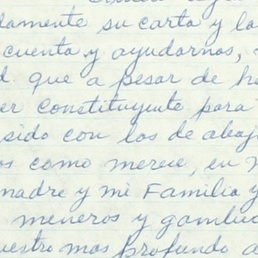 damente su carta y la
cuenta y ayudarnos,
que a pesar de h
er constituyente para
sido con los de abajo
os como merece, en n
madre y mi Familia y
meneros y gambuc
uestro mas profundo a